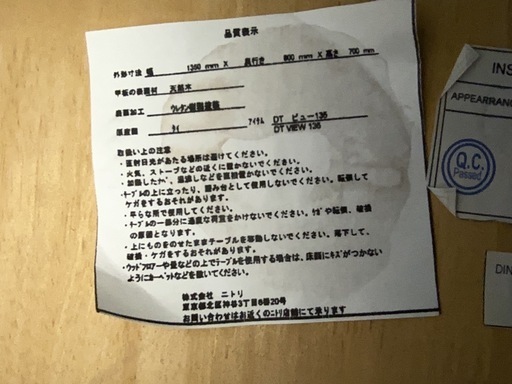 品質表示
外形寸法 幅 1350 mm X 奥行き 800 mm X 高さ 700 mm
甲板の表面材 天然木
表面加工 ウレタン樹脂塗装
原産国 タイ アイテム DT ビュー135
DT VIEW 135
取扱い上の注意
・直射日光があたる場所は避けてください。
・火気、ストーブなどの近くに置かないでください。
・加熱したナベ、湯沸しなどを直接置かないでください。
・テーブルの上に立ったり、踏み台として使用しないでください。転倒して
ケガをするおそれがあります。
・平らな所で使用してください。
・テーブルの一部分に過度な荷重をかけないでください。 や転倒、破損
の原因となります。
・上にものをのせたままテーブルを移動しないでください。落下して、
破損・ケガをするおそれがあります。
・ウッドフロアーや畳などの上でテーブルを使用する場合は、床面にキズがつかない
ようにカーペットなどを敷いてください。
株式会社 ニトリ
東京都北区神谷3丁目6番20号
お問い合わせはお近くのニトリ店舗にて承ります
INS
APPEARRAN
Q.C.
Passed
DIN